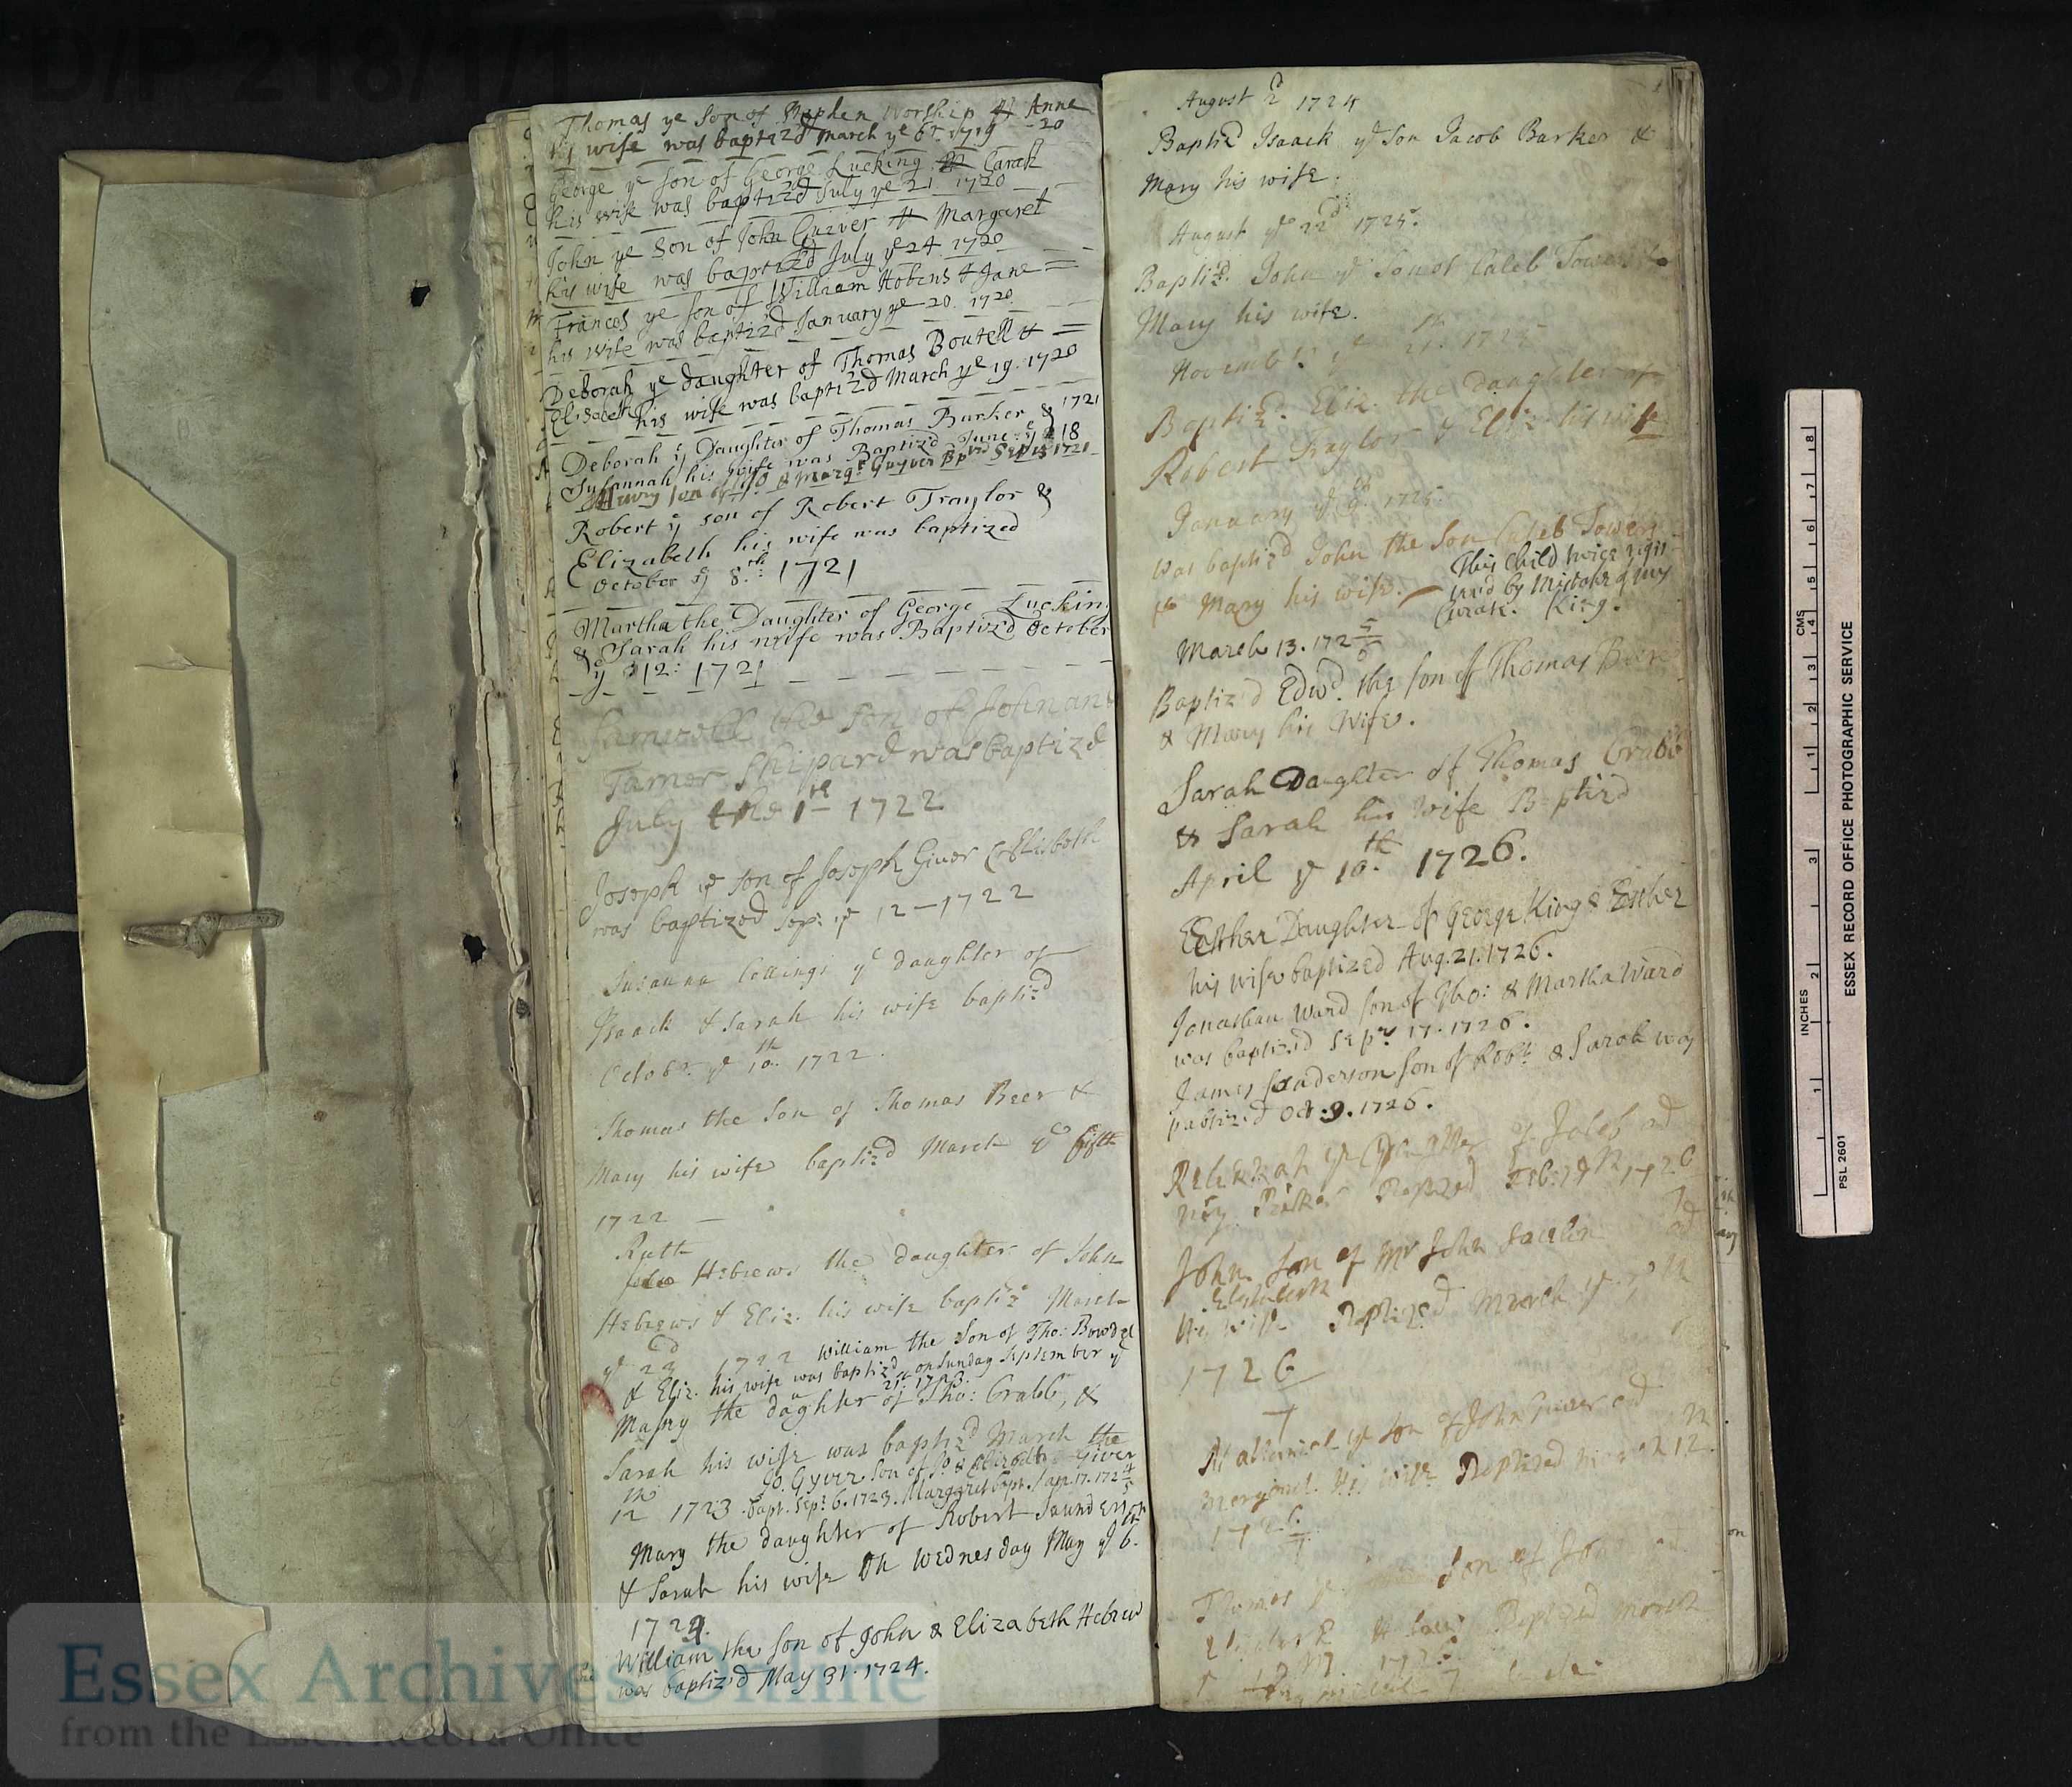 D/P 218/1/1
Thomas ye Son of Stephen Worship & Anne
his wife was baptiz'd March ye 6th 1719-20
George ye Son of George Lucking & Sarah
his wife was baptiz'd July ye 21. 1720
John ye Son of John Guiver & Margaret
his wife was baptiz'd July ye 24. 1720
Frances ye son of William Hobens & Jane =
his wife was baptiz'd January ye 20. 1720
Deborah ye daughter of Thomas Boutell & =
Elisabeth his wife was baptiz'd March ye 19. 1720
Deborah ye Daughter of Thomas Barker & 1721
Susannah his wife was Baptiz'd June ye 18
Henry son of Jo & Marg: Guyver Bp'd Sep 1721
Robert ye son of Robert Traylor &
Elizabeth his wife was baptized
October ye 8.th 1721
Martha the Daughter of George Lucking
& Sarah his wife was Baptiz'd October
ye 12: 1721
Samuell the Son of John and
Tamer Shipard was baptized
July the 1th 1722
Joseph ye son of Joseph Giver & Elisbeth
was baptized Sep: ye 12-1722
Susanna Collings ye daughter of
Isaack & Sarah his wife baptiz'd
Octobr. ye 10.th 1722.
Thomas the Son of Thomas Beer &
Mary his wife baptiz'd March ye fifth
1722 -
Ruth
Hebrews the daughter of John
Hebrews & Eliz. his wife baptiz'd March
ye 23d 1722 William the Son of Tho: Bowdel
& Eliz. his wife was baptiz'd on Sunday September ye
21st 1723.
Mary the daughter of Tho: Crabb, &
Sarah his wife was baptiz'd March the
12th 1723 Jo. Gyver Son of Jo & Elizabth Giver
bapt. Sep: 6. 1723. Margaret bapt. Jan. 17. 172 4/5
Mary the daughter of Robert Saunderson
& Sarah his wife on Wednesday May ye 6.th
1724.
William the Son of John & Elizabeth Hebrew
was baptiz'd May 31. 1724.
August 2d 1724
Baptiz'd Isaack ye Son Jacob Barker &
Mary his wife.
August ye 22d 1725.
Baptiz'd. John ye Son of Caleb Towers &
Mary his wife.
Novembr. ye 21.th 1725
Baptiz'd. Eliz. the daughter of
Robert Traylor & Eliz. his wife
January ye 1725.
Was baptiz'd John the Son Caleb Towers
& Mary his wife. This Child twice regis
tred by Mistake of my
Curate. King.
March 13. 172 5/6
Baptiz'd Edwd. the son of Thomas Beer
& Mary his Wife.
Sarah Daughter of Thomas Crabb
& Sarah his Wife Baptiz'd
April ye 10.th 1726.
Esther Daughter of George King & Esther
his wife baptized Aug. 21. 1726.
Jonathan Ward son of Tho: & Martha Ward
was baptiz'd Sepr 17. 1726.
James Sanderson son of Robt. & Sarah was
babtiz'd Oct. 9. 1726.
Rebekah ye Daughter of Jaleb ad
Baptized Feb: 1726
John Son of Mr John
Elisabeth
his wife Baptized March ye
1726
Nathaniel ye son of John Guver ad
Margaret His wife Baptized 12
172 6/7
Thomas ye Son of John
Baptized March
INCHES 1 2 3 CMS 1 2 3 4 5 6 7 8
ESSEX RECORD OFFICE PHOTOGRAPHIC SERVICE
PSL 2601
Essex Archives Online
from the Essex Record Office